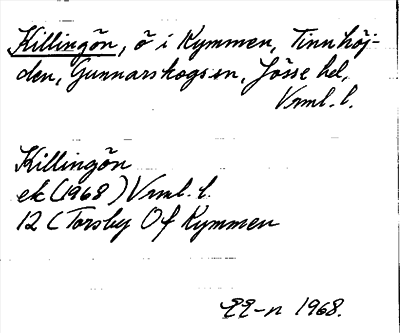 Killingön, ö i Kymmen, Tinnhöj-
den, Gunnarskogs sn, Jösse hd,
Vrml. l.
Killingön
ek (1968) Vrml. l.
12 C Torsby Of Kymmen
1968.